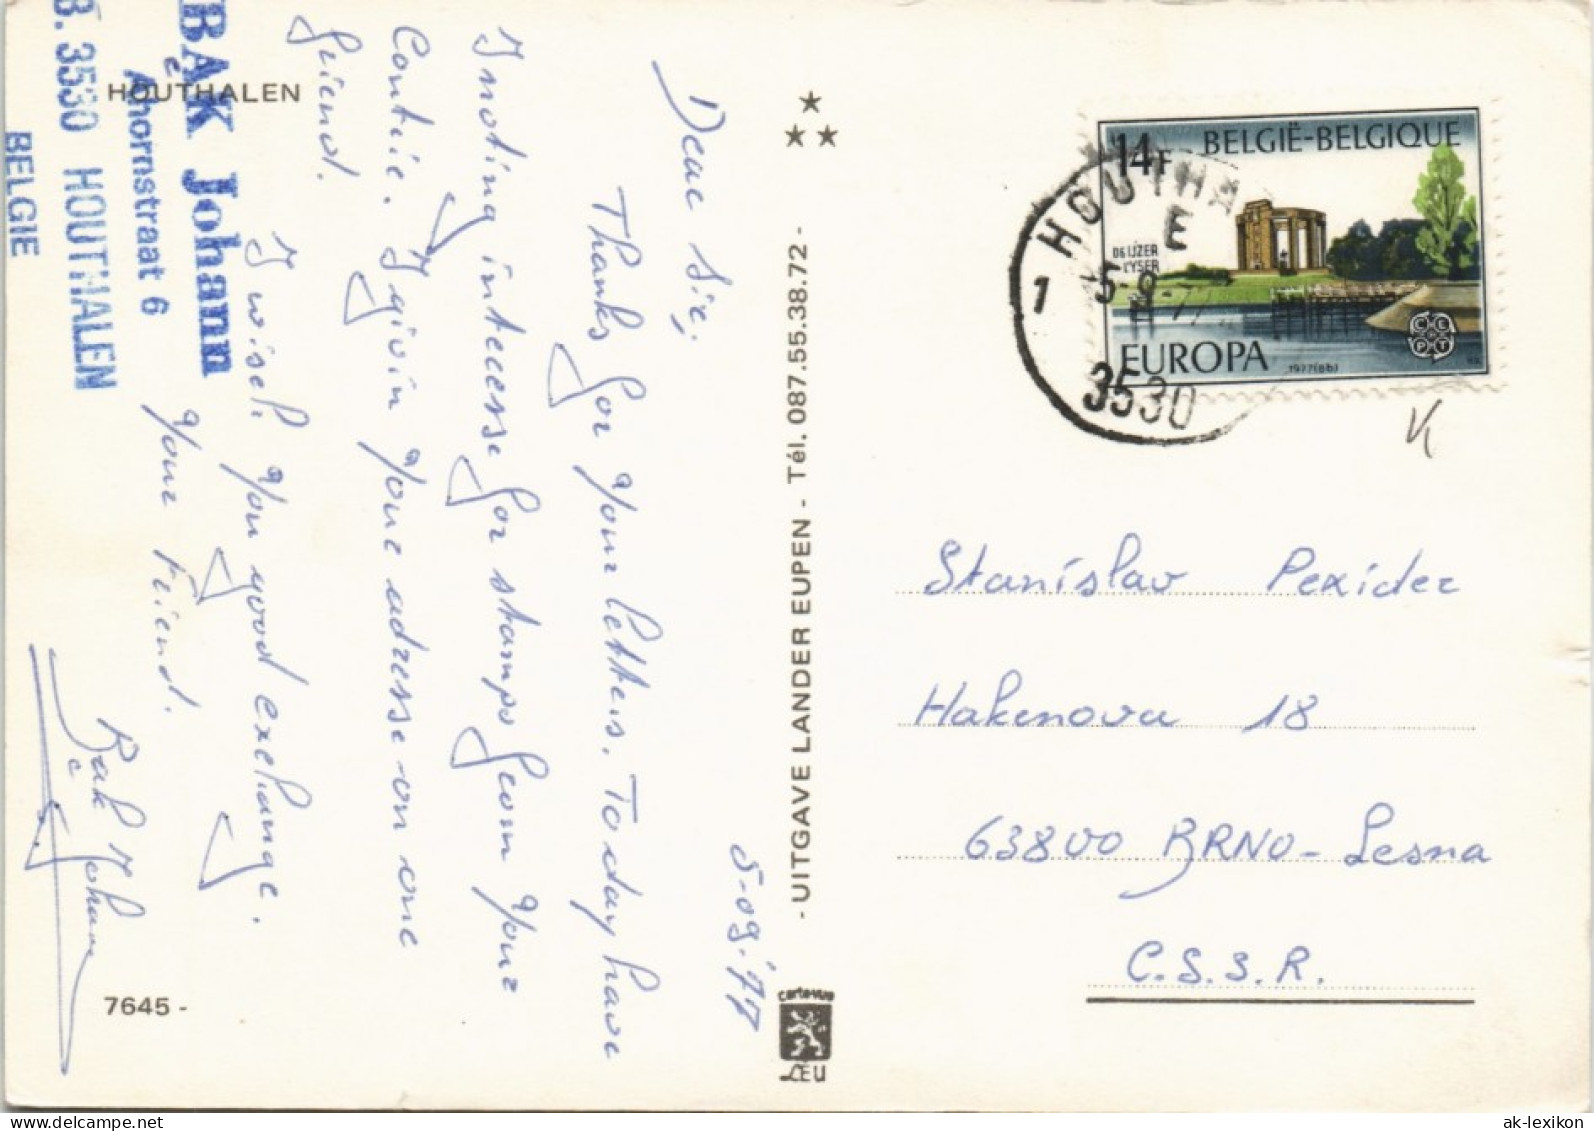 BAK Johann
Ahornstraat 6
B. 3530 HOUTHALEN
BELGIE
HOUTHALEN
5-09-'77
Dear Sir,
Thanks for your letters. Today have
I noting interesse for stamps from your
Contie. I givin your adresse on one
friend.
I wish you good exchange.
your Friend.
Bak Johann
7645 -
- UITGAVE LANDER EUPEN - Tél. 087.55.38.72 -
cartevue
LÉU
14F BELGIË-BELGIQUE
DE IJZER
L'YSER
EUROPA
1977(6b)
CEPT
HOUTHA
E
1 5-9-77
3530
Stanislav Pexider
Hakenova 18
63800 BRNO - Lesna
C.S.S.R.
ak-lexikon